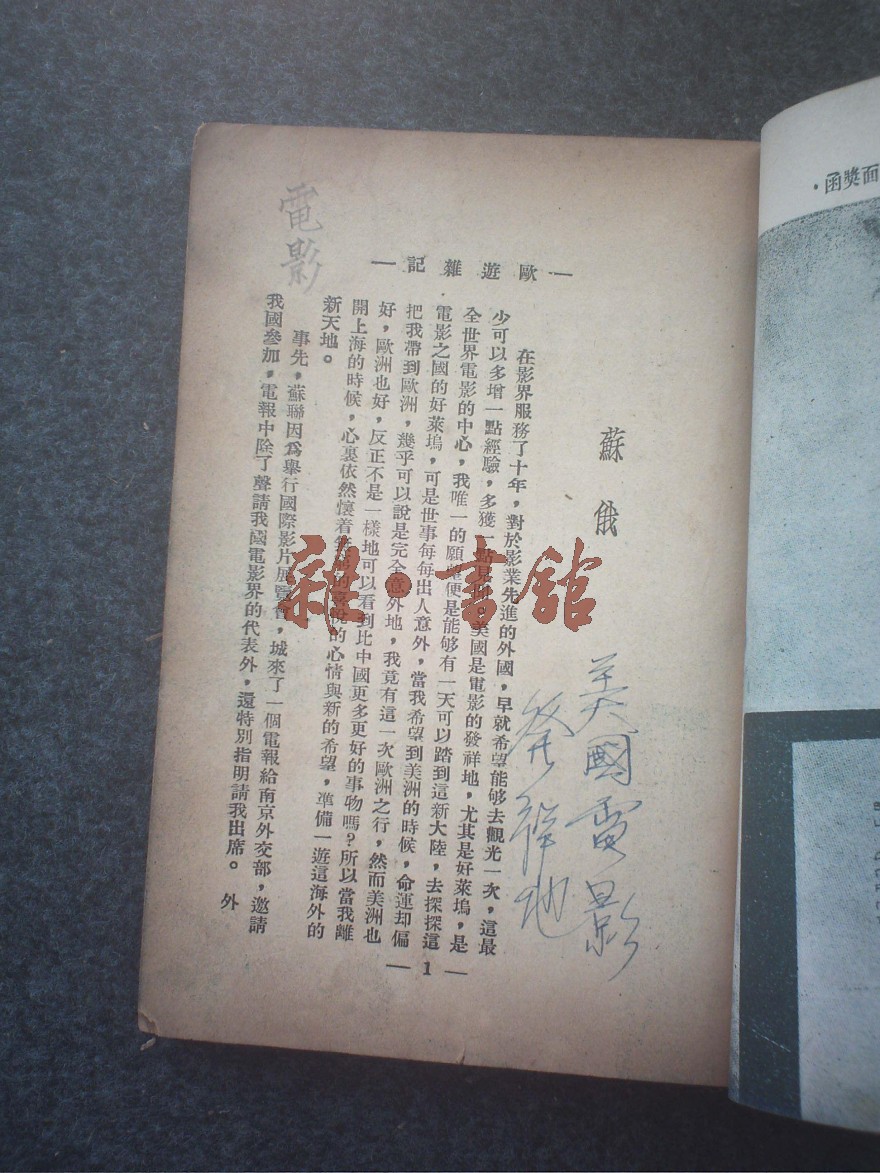 面獎函·
—歐遊雜記—
蘇俄
在影界服務了十年,對於影業先進的外國,早就希望能够去觀光一次,這最
少可以多增一點經驗,多獲一點見聞。美國是電影的發祥地,尤其是好萊塢,是
全世界電影的中心,我唯一的願望便是能够有一天可以踏到這新大陸,去探探這
電影之國的好萊塢,可是世事每每出人意外,當我希望到美洲的時候,命運却偏
把我帶到歐洲,幾乎可以說是完全意外地,我竟有這一次歐洲之行,然而美洲也
好,歐洲也好,反正不是一樣地可以看到比中國更多更好的事物嗎?所以當我離
開上海的時候,心裏依然懷着的喜悅的心情與新的希望,準備一遊這海外的
新天地。
事先,蘇聯因爲舉行國際影片展覽會,城來了一個電報給南京外交部,邀請
我國參加,電報中除了聲請我國電影界的代表外,還特別指明請我出席。 外
—1—
美國電影
發祥地
電影
雜·書館